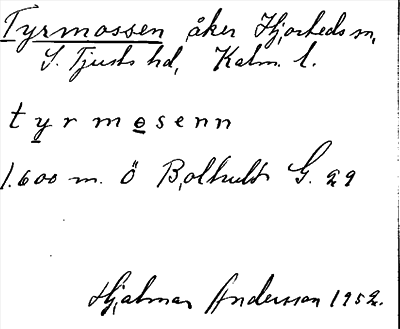 Tyrmossen åker Hjorteds sn,
S. Tjusts hd, Kalm. l.
tyrmosenn
1.600 m. Ö Bolhult G. 29
Hjalmar Andersson 1952.